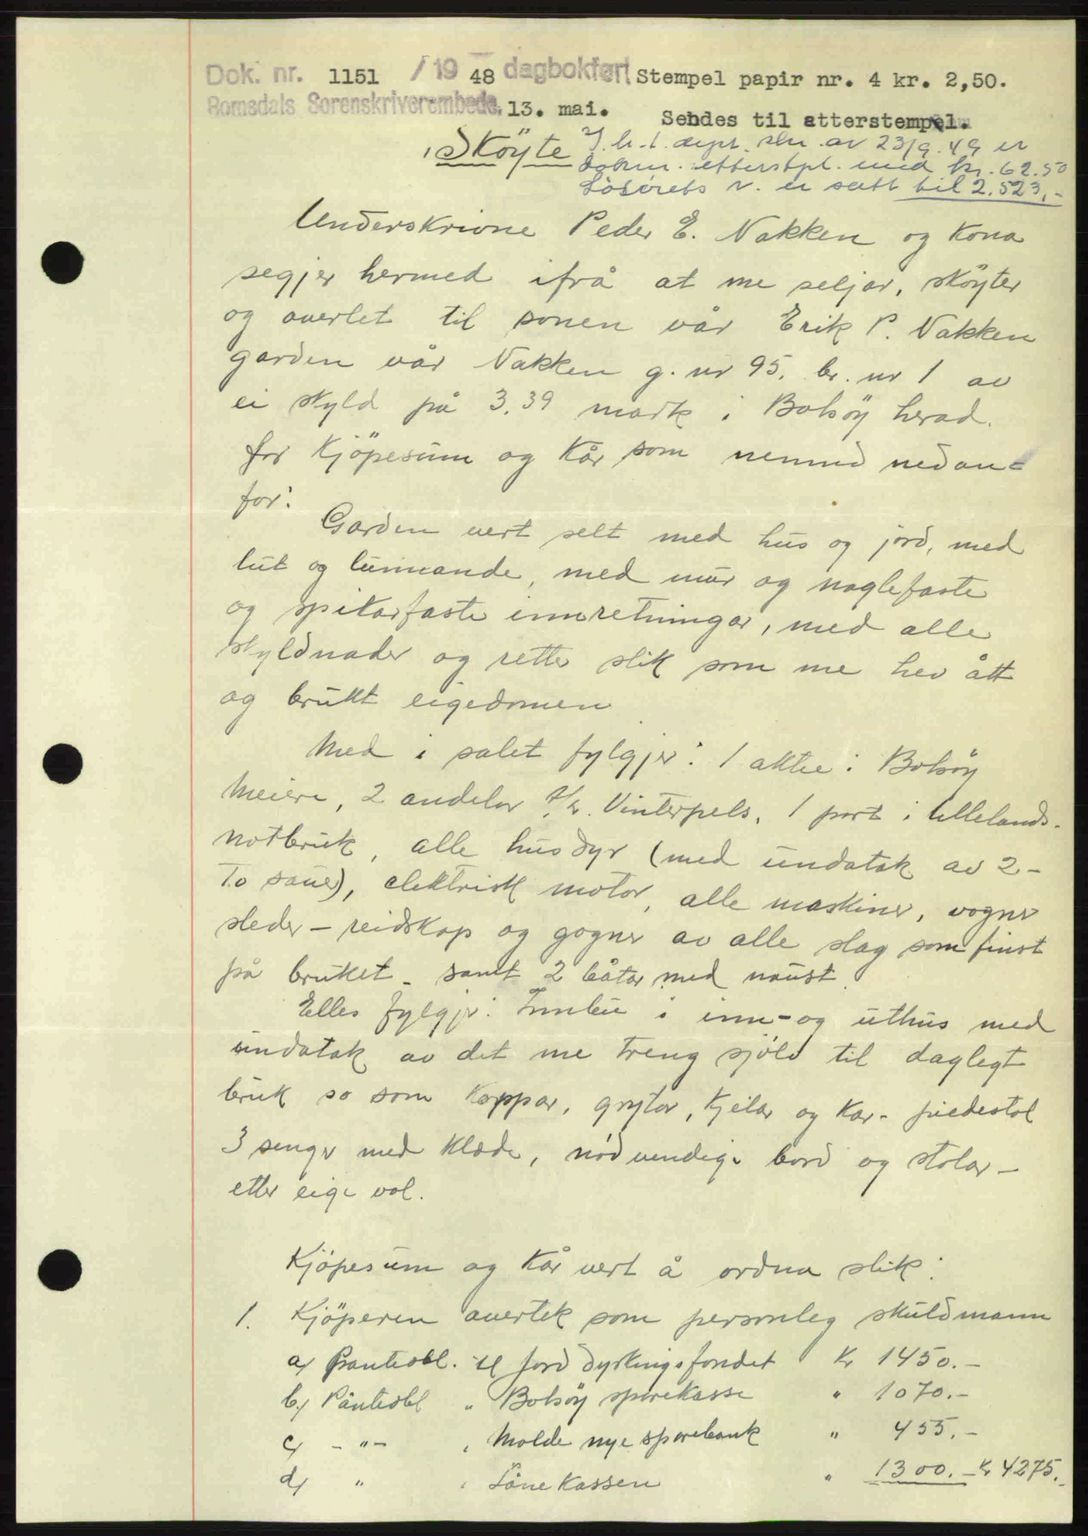 Dok. nr. 1151 / 19 48 dagbokført Stempel papir nr. 4 kr. 2,50.
Romsdals Sorenskriverembede, 13. mai. Sendes til etterstempel.
Skøyte J. h. t. dept. skr. av 23/9.49 er
dokum. etterstpl. med kr. 62.50
Løsørets v. er satt til 2.523,-
Underskrivne Peder E. Nakken og kona
segjer hermed ifrå at me seljar, skøyter
og overlet til sonen vår Erik P. Nakken
garden vår Nakken g. nr 95, br. nr 1 av
ei skyld på 3.39 mark i Bolsöy herad.
for Kjöpesum og Kår som nemnd nedan-
for:
Garden vert selt med hus og jord, med
lut og lunnande, med mur og naglefaste
og spikarfaste innretningar, med alle
skyldnader og retter slik som me hev ått
og brukt eigedomen
Med i salet fylgjer: 1 aktie i Bolsöy
Meieri, 2 andelar Vinterpels, 1 part i
notbruk, alle husdyr (med undatak av 2-
to sauer), elektrisk motor, alle maskiner, vogner
sleder - reidskap og gogner av alle slag som finst
på bruket - samt 2 båtar med naust.
Elles fylgjer: Innbu i inn- og uthus med
undatak av det me treng sjølv til daglegt
bruk so som Koppar, grytor, Kjelar og Kar - piedestal
3 senger med Klæde, nödvendige bord og stolar -
etter eige val.
Kjöpesum og Kår vert å ordna slik:
1. Kjöperen overtek som personleg skuldmann
a/ Panteobl. til Jorddyrkingsfondet Kr 1450.-
b/ Panteobl " Bolsöy sparekasse " 1070.-
c/ - " - " Molde nye sparebank " 455.-
d/ " " Lånekassen " 1300.- Kr 4275.-